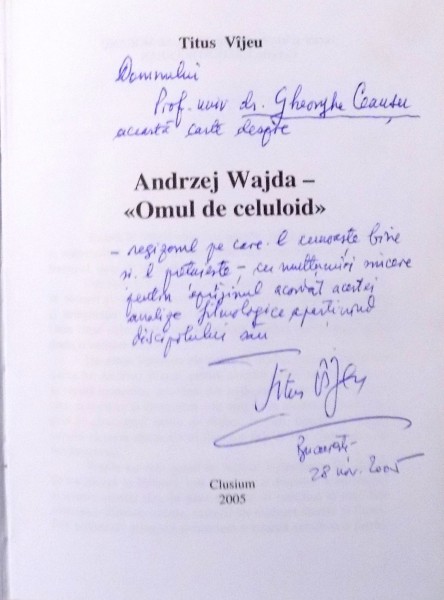 Titus Vîjeu
Domnului
Prof. univ dr. Gheorghe Ceaușu
această carte despre
Andrzej Wajda –
«Omul de celuloid»
– regizorul pe care-l cunoaște bine
și-l prețuiește – cu mulțumiri sincere
pentru sprijinul acordat acestei
analize filmologice aparținînd
discipolului său
Titus Vîjeu
București-
28 nov. 2005
Clusium
2005